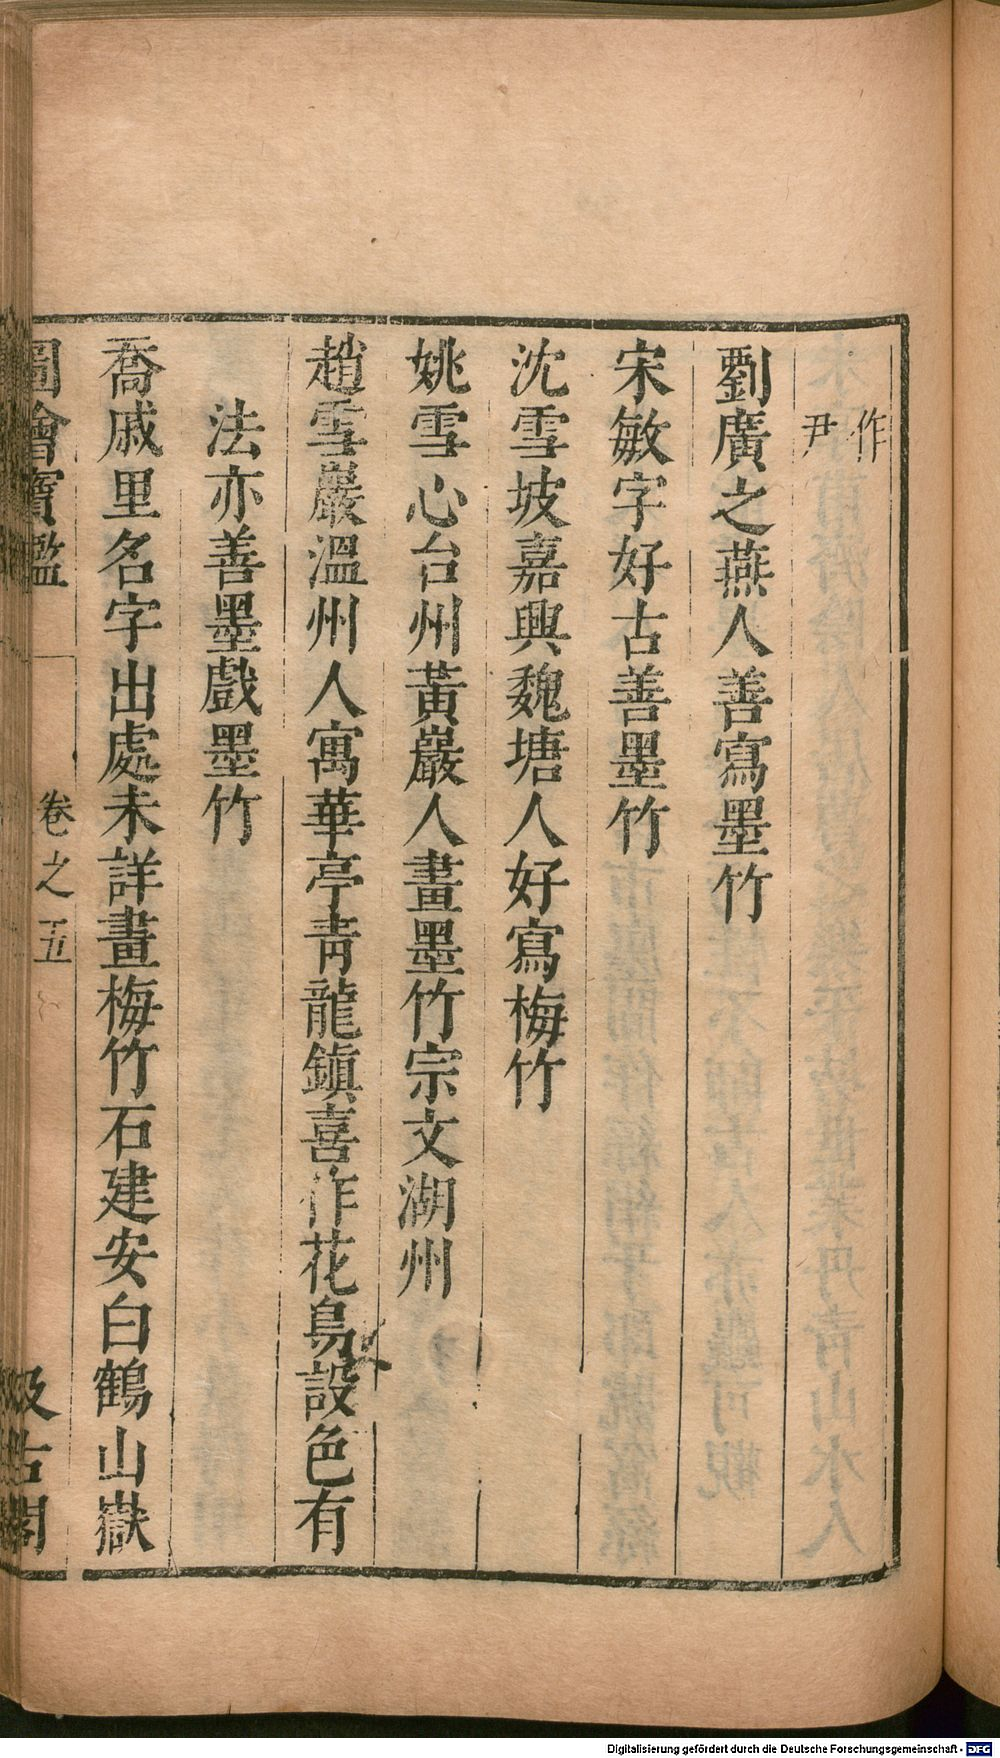 作
尹
劉廣之燕人善寫墨竹
宋敏字好古善墨竹
沈雪坡嘉興魏塘人好寫梅竹
姚雪心台州黃巖人畫墨竹宗文湖州
趙雪巖溫州人寓華亭青龍鎮喜作花鳥設色有
法亦善墨戲墨竹
喬戚里名字出處未詳畫梅竹石建安白鶴山嶽
圖會寶鑑 卷之五 汲古閣
Digitalisierung gefördert durch die Deutsche Forschungsgemeinschaft - DFG